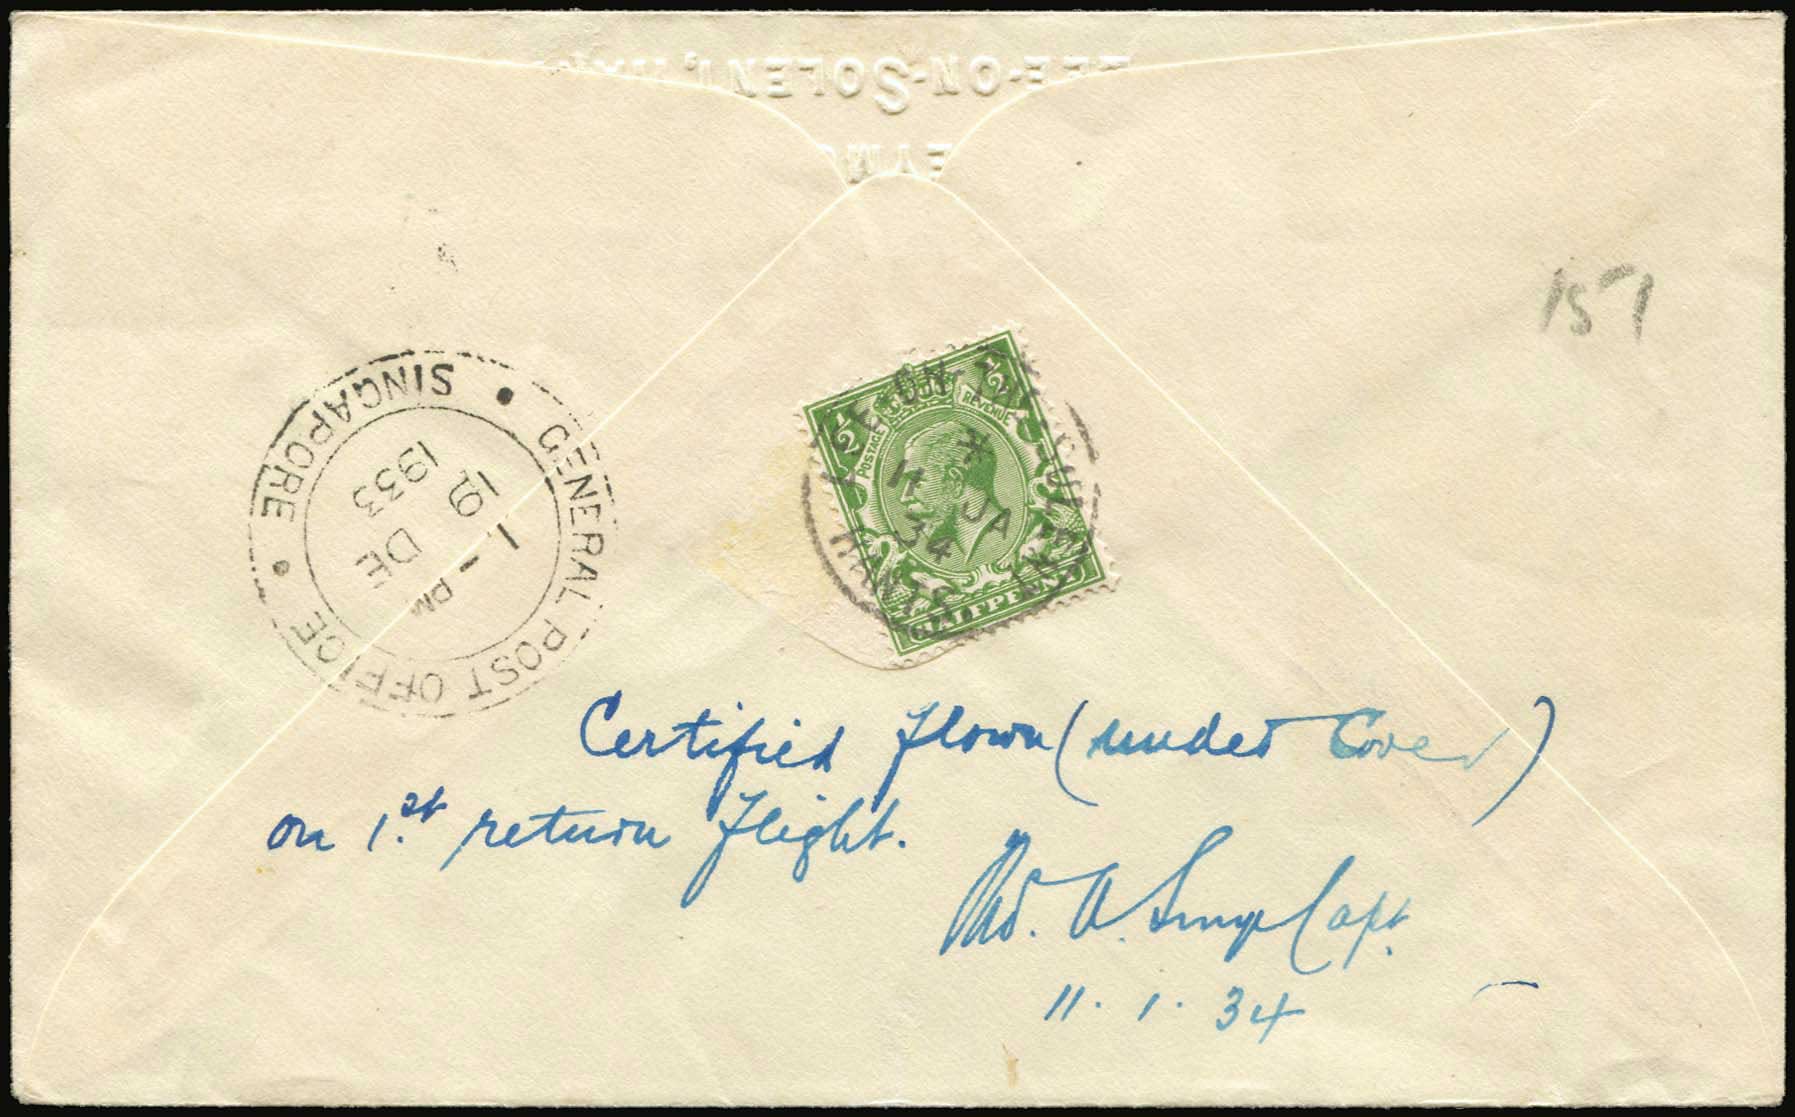 LEE-ON-SOLENT,
EYM
151
GENERAL POST OFFICE
SINGAPORE
1 - PM
19 DE
1933
½ ½
POSTAGE REVENUE
HALFPENNY
LEE-ON-THE-SOLENT
*
11 JA
34
HANTS
Certified flown (under Cover)
on 1st return flight.
A. Capt.
11.1.34